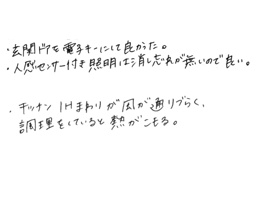 ・玄関ドアを電子キーにして良かった。
・人感センサー付き照明は消し忘れが無いので良い。
・キッチンIHまわりが風が通りづらく、
調理をしていると熱がこもる。